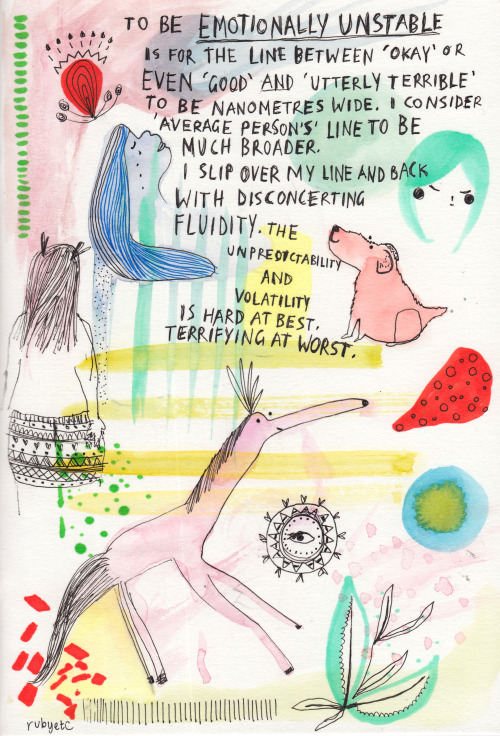 TO BE EMOTIONALLY UNSTABLE
IS FOR THE LINE BETWEEN 'OKAY' OR
EVEN 'GOOD' AND 'UTTERLY TERRIBLE'
TO BE NANOMETRES WIDE. I CONSIDER
'AVERAGE PERSON'S' LINE TO BE
MUCH BROADER.
I SLIP OVER MY LINE AND BACK
WITH DISCONCERTING
FLUIDITY. THE
UNPREDICTABILITY
AND
VOLATILITY
IS HARD AT BEST.
TERRIFYING AT WORST.
rubyetc